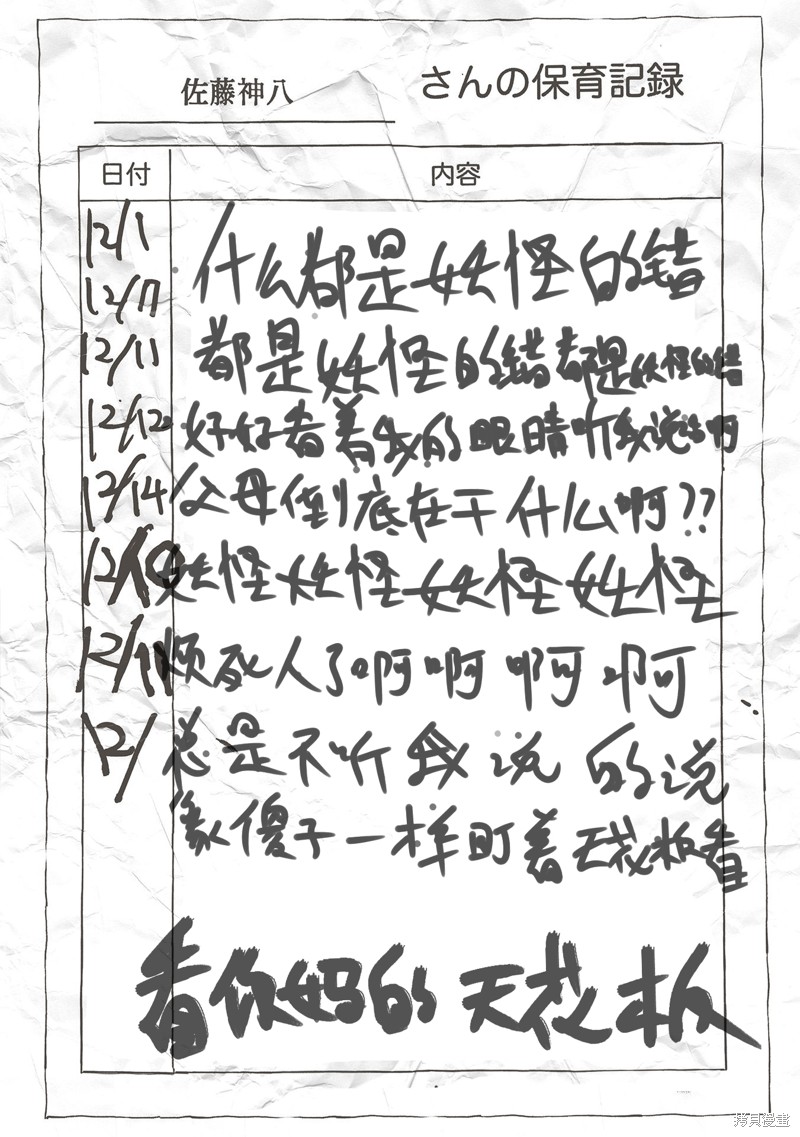 佐藤神八 さんの保育記録
日付 内容
12/1 什么都是妖怪的错
12/7
12/11 都是妖怪的错都是妖怪的错
12/12 好好看着我的眼睛听我说话啊
12/14 父母倒底在干什么啊??
12/ 妖怪妖怪妖怪妖怪
12/ 烦死人了啊啊啊啊
12/ 总是不听我说的说
象傻子一样盯着天花板看
看你妈的天花板
拷貝漫畫